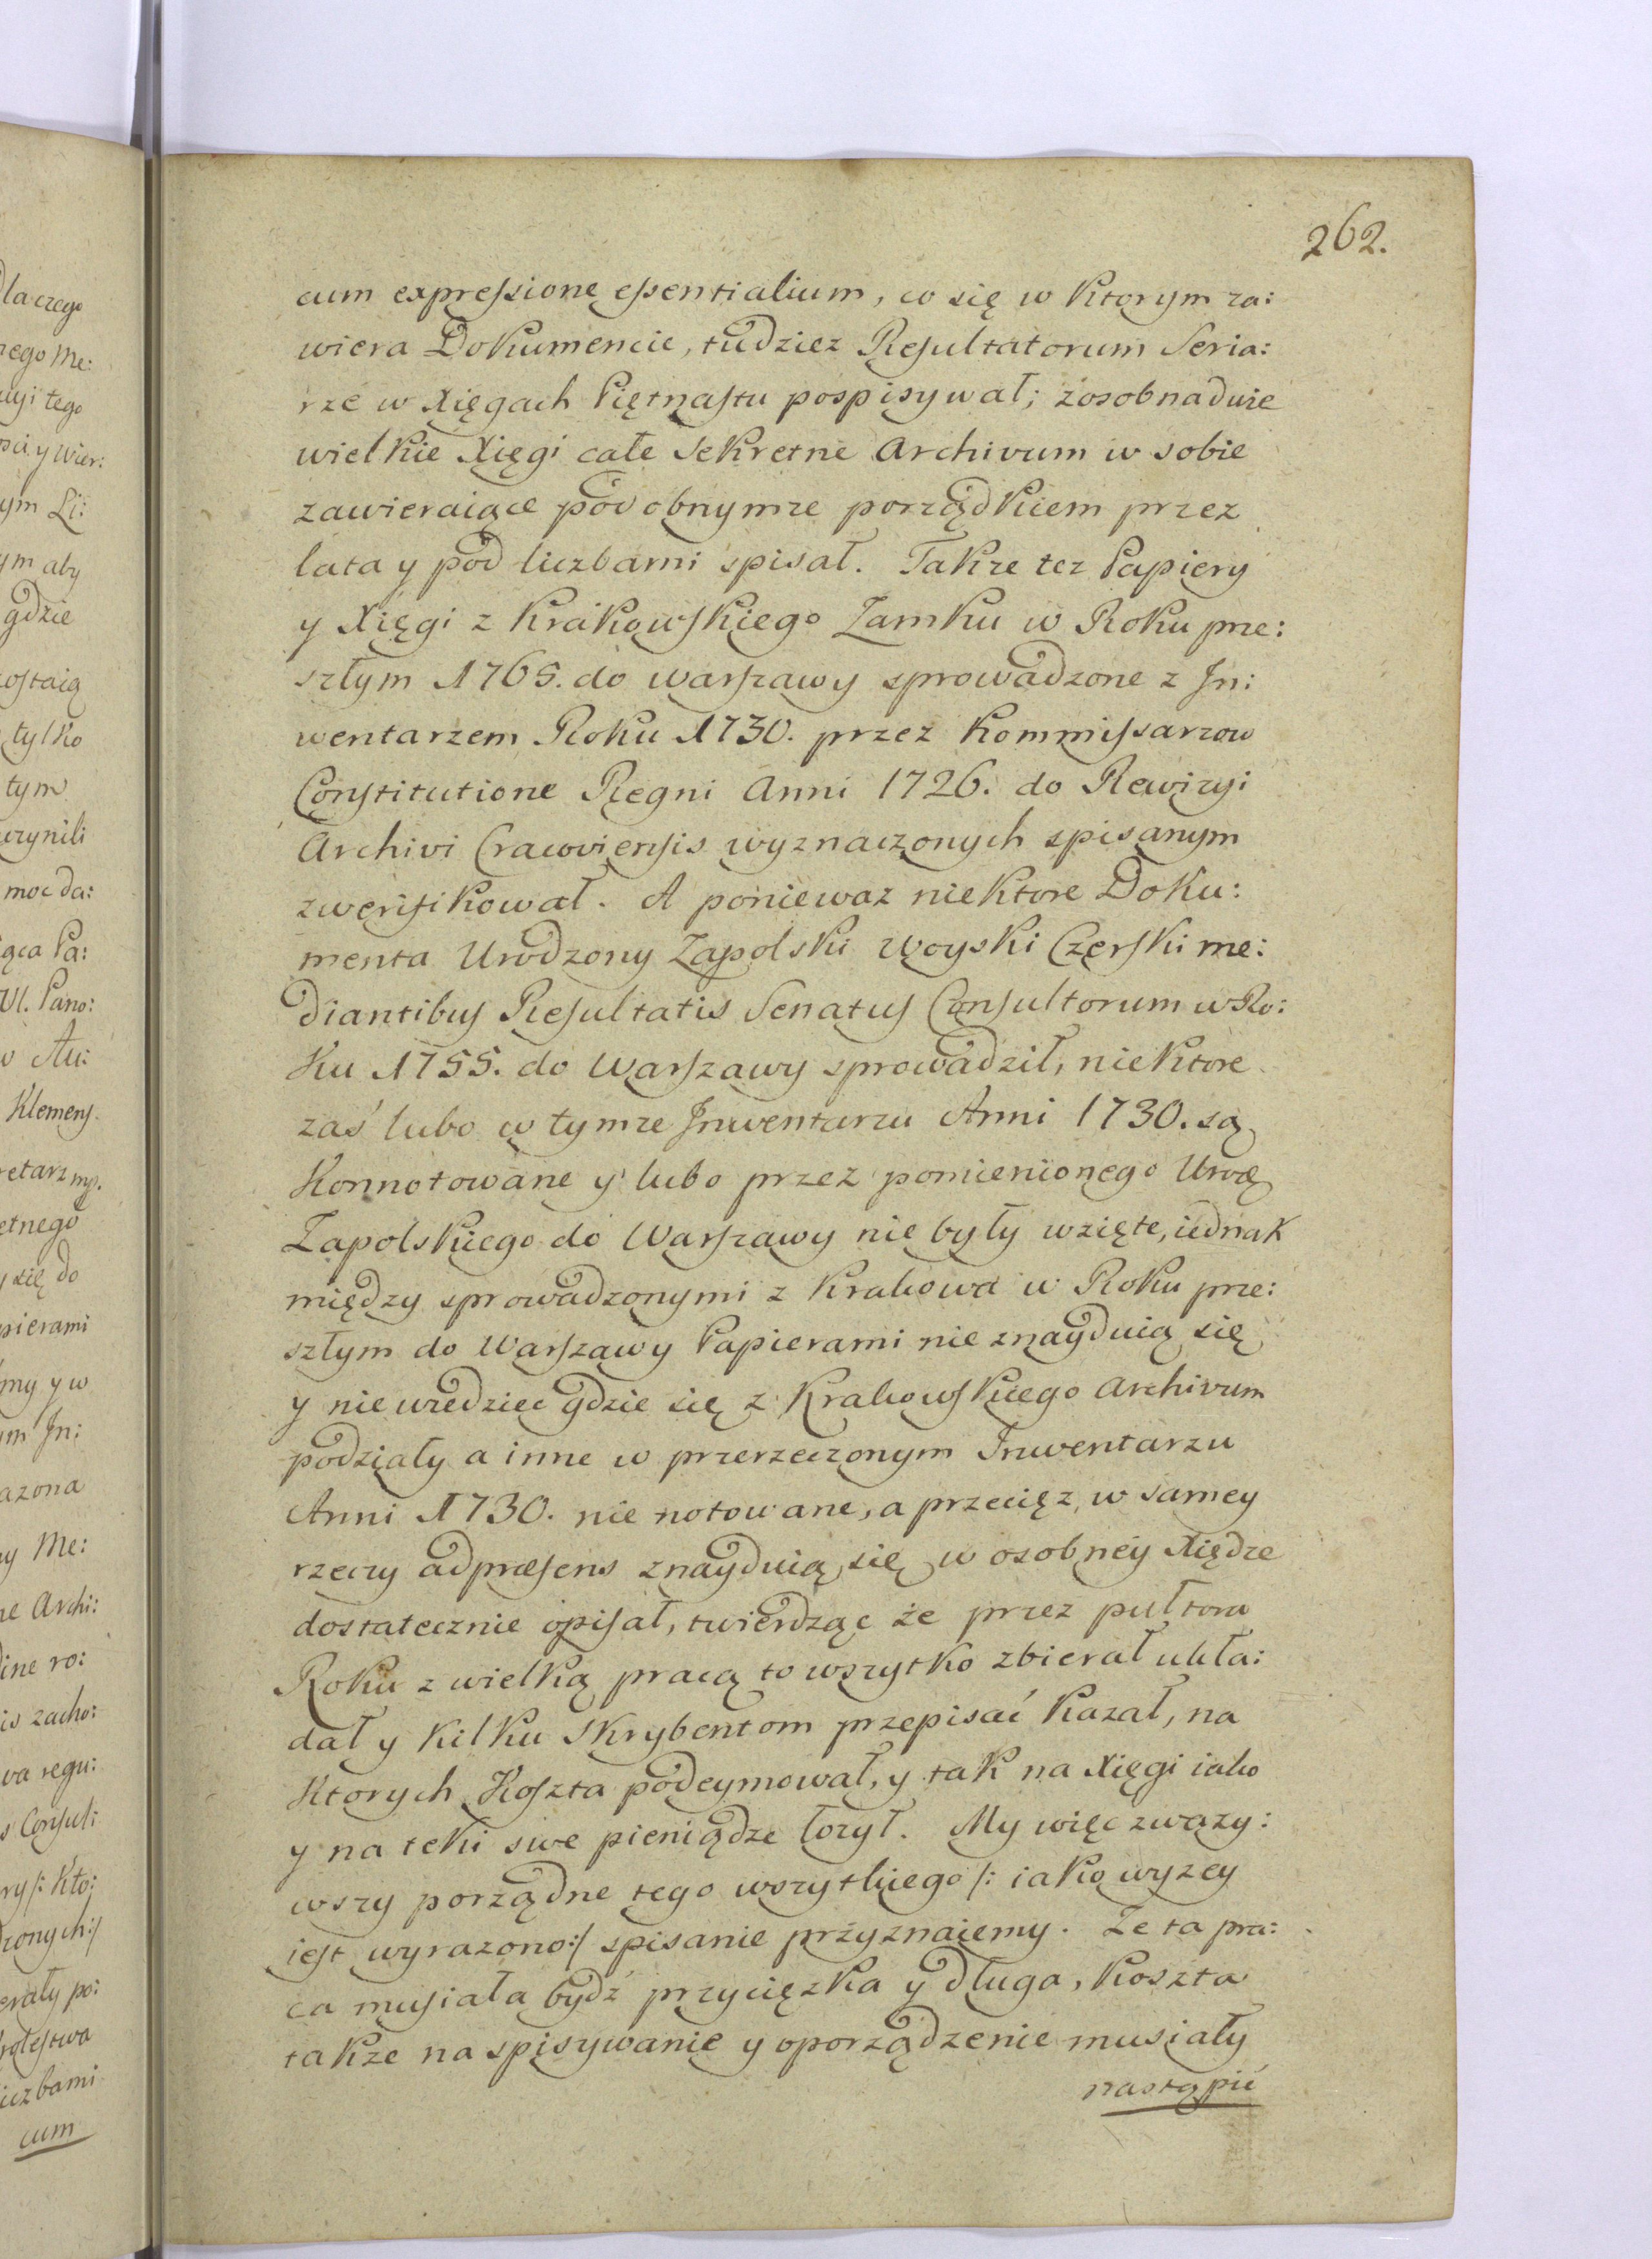 262.
cum expressione essentialium, co się w ktorym za:
wiera Dokumencie, tudziez Resultatorum Seria:
rze w Xięgach Piętnastu pospisywał; zosobna dwie
wielkie Xięgi całe Sekretne Archivum w sobie
zawieraiące podobnymze porządkiem przez
lata y pod liczbami spisał. Takze tez Papiery
y Xięgi z Krakowskiego Zamku w Roku prze:
szłym 1765. do Warszawy sprowadzone z In:
wentarzem Roku 1730. przez Kommissarzow
Constitutione Regni Anni 1726. do Rewizyi
Archivi Cracoviensis wyznaczonych spisanym
zweryfikował. A poniewaz niektore Doku:
menta Urodzony Zapolski Woyski Czerski me:
diantibus Resultatis Senatus Consultorum w Ro:
ku 1755. do Warszawy sprowadził, niektore
zaś lubo w tymze Inwentarzu Anni 1730. są
Konnotowane y lubo przez pomienionego Uro
Zapolskiego do Warszawy nie były wzięte, iednak
między sprowadzonymi z Krakowa w Roku prze:
szłym do Warszawy Papierami nie znayduią się
y nie wiedziec gdzie się z Krakowskiego Archivum
podziały a inne w przerzeczonym Inwentarzu
Anni 1730. nie notowane, a przecięz w samey
rzeczy adpræsens znayduią się w osobney Xiędze
dostatecznie opisał, twierdząc że przez pułtora
Roku z wielką pracą to wszytko zbierał ukła:
dał y kilku Skrybentom przepisać kazał, na
ktorych Koszta podeymował, y tak na Xięgi iako
y na teki swe pieniądze łozył. My więc zwazy:
wszy porządne tego wszytkiego /: iako wyzey
iest wyrazono:/ spisanie przyznaiemy. Ze ta pra:
ca musiała bydź przycięzka y długa, koszta
takze na spisywanie y oporządzenie musiały
nastąpić
dla czego
tego
y Wier:
ym Li:
ym aby
gdzie
zostaią
tylko
tym
uczynili
moc da:
Pa:
Ul. Pano:
Au:
Klemens
się do
y w
In:
Me:
Archi:
zacho:
regu:
Consul:
Kto:
po:
liczbami
cum